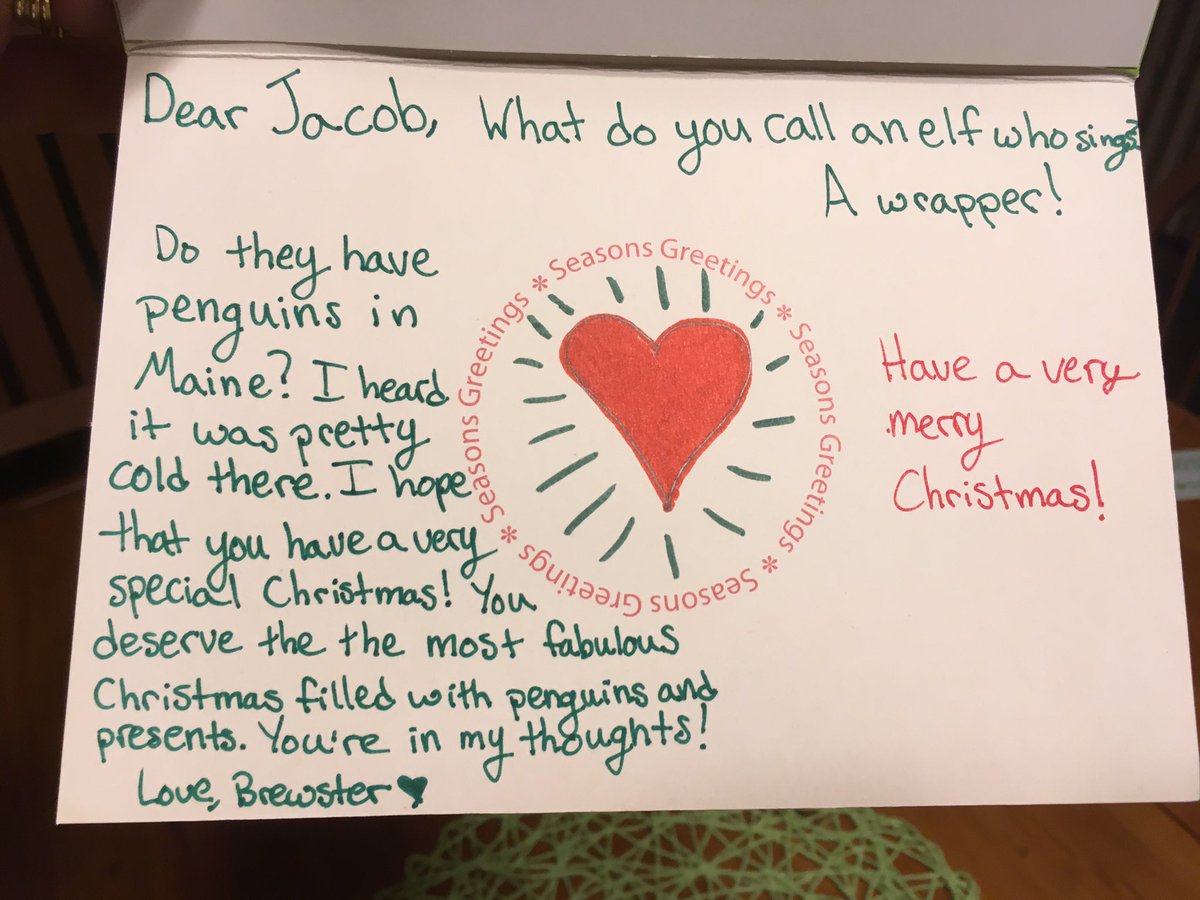 Dear Jacob, What do you call an elf who sings?
A wrapper!
Do they have
penguins in
Maine? I heard
it was pretty
cold there. I hope
that you have a very
special Christmas! You
deserve the the most fabulous
Christmas filled with penguins and
presents. You're in my thoughts!
Love, Brewster
Seasons Greetings * Seasons Greetings * Seasons Greetings * Seasons Greetings * Seasons Greetings *
Have a very
merry
Christmas!